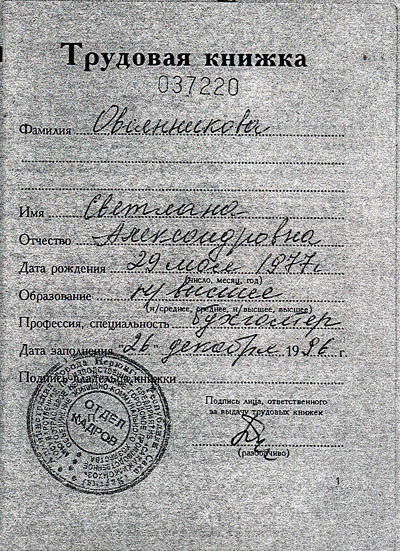 Трудовая книжка
037220
Фамилия Овсянникова
Имя Светлана
Отчество Александровна
Дата рождения 29 мая 1977г
(число, месяц, год)
Образование н/высшее
(н/среднее, среднее, н/высшее, высшее)
Профессия, специальность бухгалтер
Дата заполнения "26" декабря 1996 г.
Подпись владельца книжки
Подпись лица, ответственного
за выдачу трудовых книжек
(разборчиво)
ОТДЕЛ
КАДРОВ
1